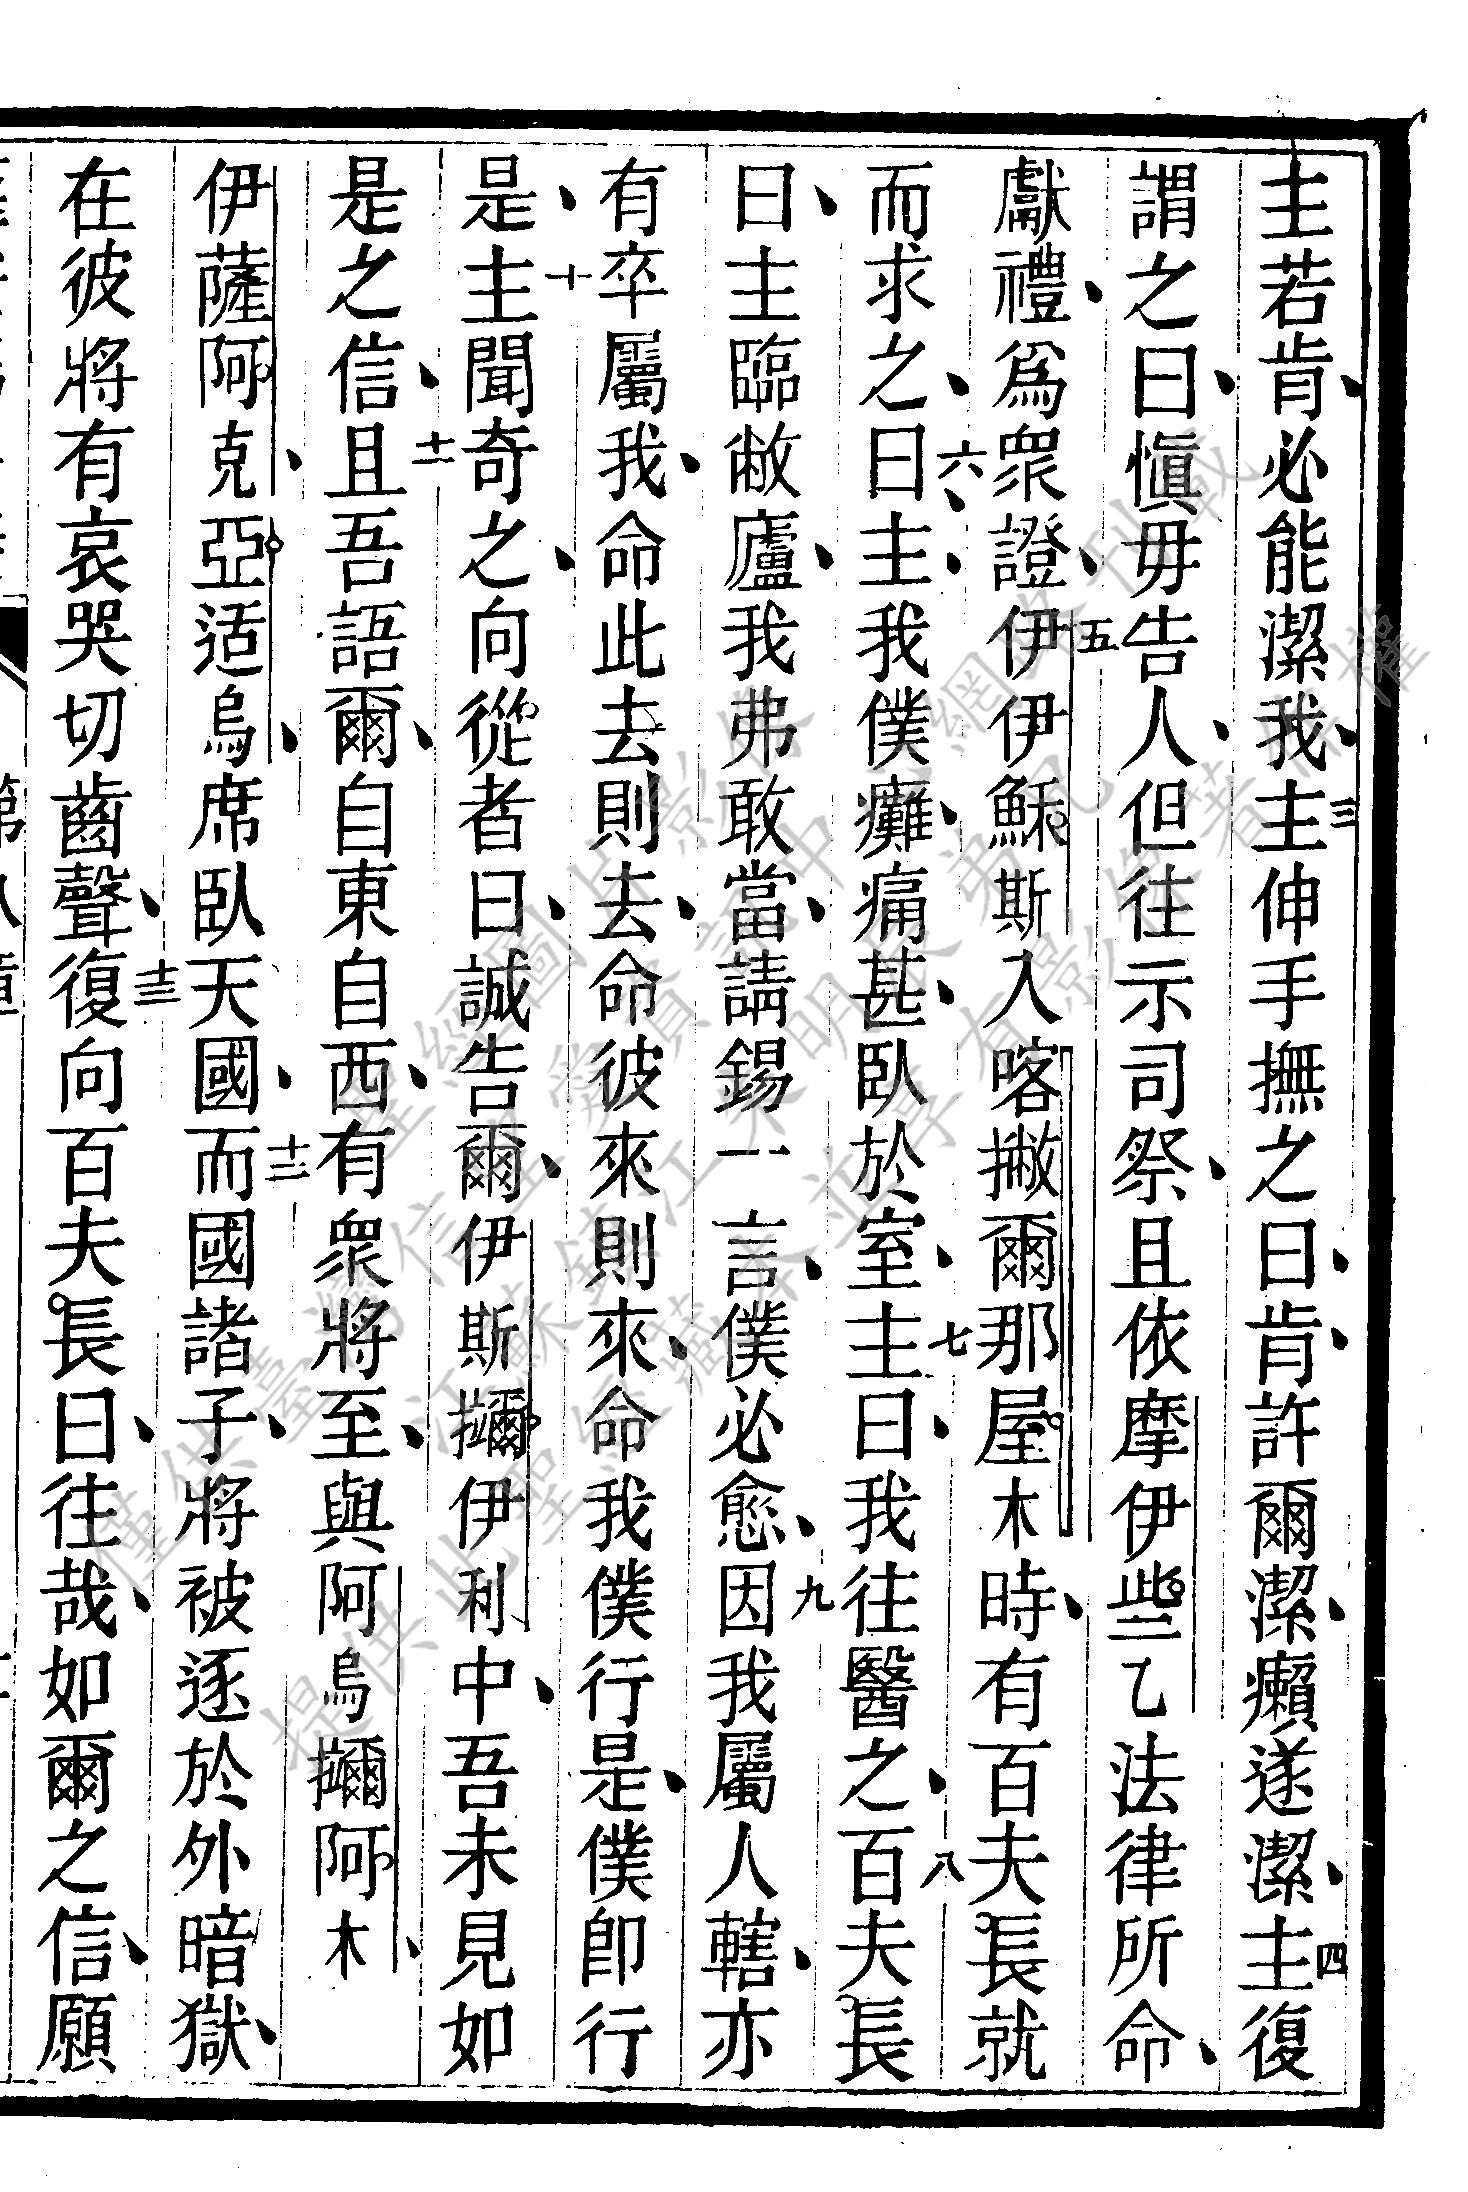 主若肯、必能潔我、三主伸手撫之曰、肯、許爾潔、癩遂潔、四主復
謂之曰、愼毋告人、但往示司祭、且依摩伊些乙法律所命、
獻禮、爲衆證、五伊伊穌斯入喀撇爾那屋木時、有百夫長就
而求之、六曰、主、我僕癱、痛甚、臥於室、七主曰、我往醫之、八百夫長
曰、主臨敝廬、我弗敢當、請錫一言、僕必愈、九因我屬人轄、亦
有卒屬我、命此去則去、命彼來則來、命我僕行是、僕卽行
是、十主聞奇之、向從者曰、誠告爾、伊斯擟伊利中、吾未見如
是之信、十一且吾語爾、自東自西、有衆將至、與阿烏擟阿木、
伊薩阿克、亞适烏、席臥天國、十二而國諸子、將被逐於外暗獄、
在彼將有哀哭切齒聲、十三復向百夫長曰、往哉、如爾之信、願